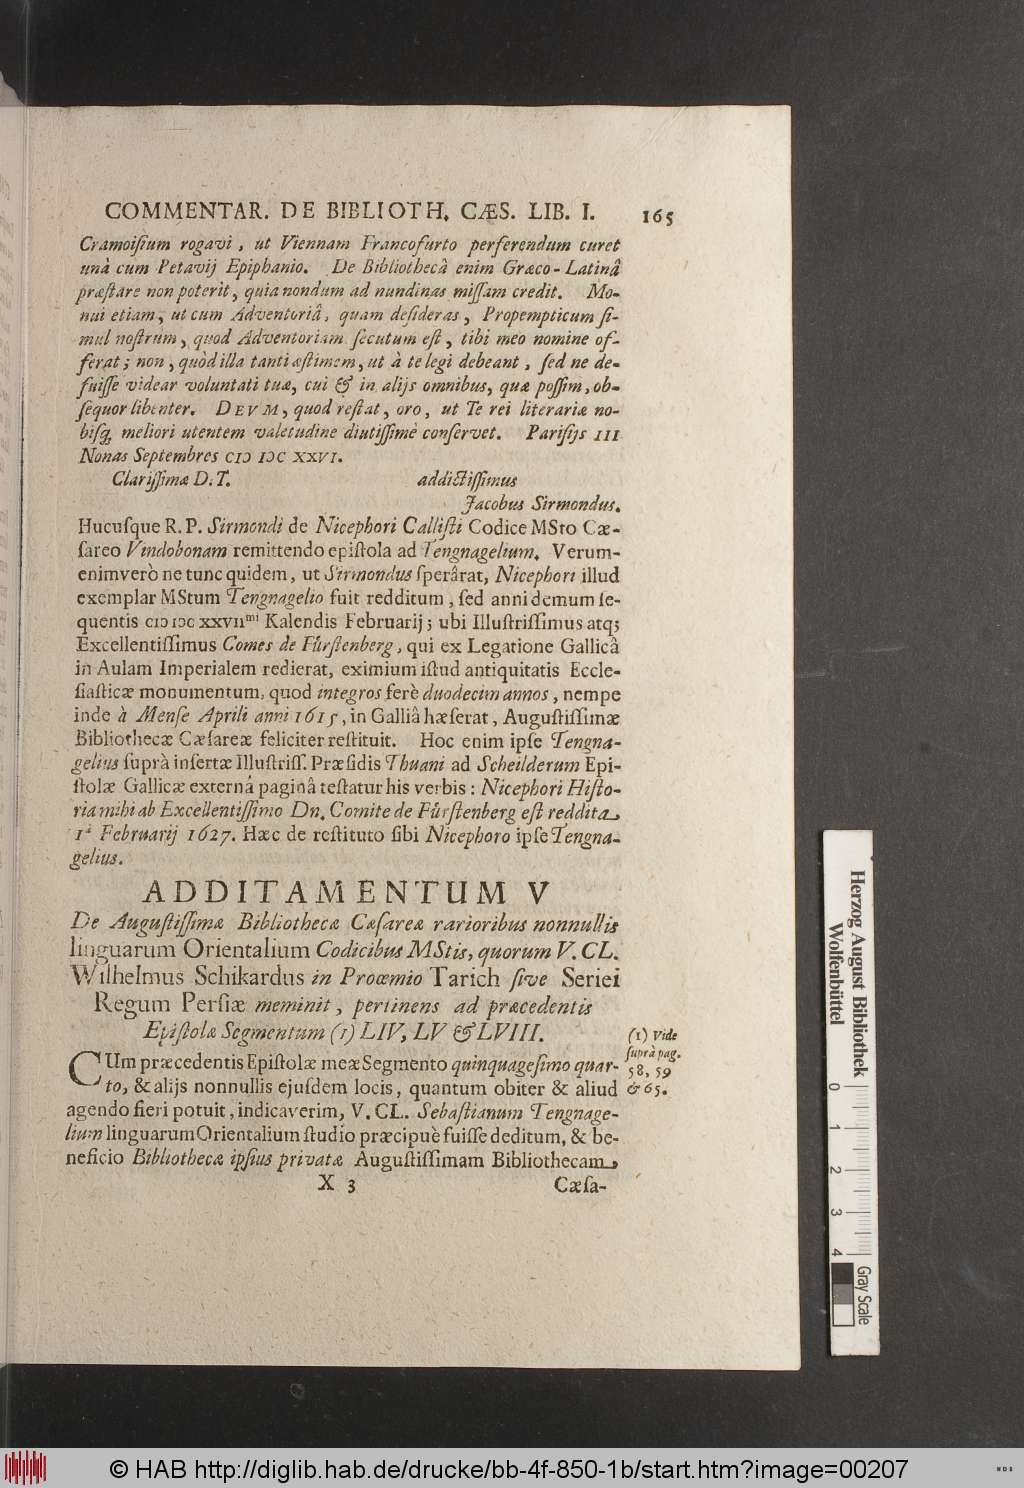 COMMENTAR. DE BIBLIOTH. CÆS. LIB. I. 165
Cramoiſium rogavi, ut Viennam Francofurto perferendum curet
unà cum Petavij Epiphanio. De Bibliothecâ enim Græco-Latinâ
præſtare non poterit, quia nondum ad nundinas miſſam credit. Mo-
nui etiam, ut cum Adventoriâ, quam deſideras, Propempticum ſi-
mul noſtrum, quod Adventoriam ſecutum eſt, tibi meo nomine of-
ferat; non, quòd illa tanti æſtimem, ut à te legi debeant, ſed ne de-
fuiſſe videar voluntati tuæ, cui & in alijs omnibus, quæ poſſim, ob-
ſequor libenter. DEVM, quod reſtat, oro, ut Te rei literariæ no-
biſq; meliori utentem valetudine diutiſſimè conſervet. Pariſijs III
Nonas Septembres CIↃ IↃC XXVI.
Clariſſimæ D. T. addictiſſimus
Jacobus Sirmondus.
Hucuſque R. P. Sirmondi de Nicephori Calliſti Codice MSto Cæ-
ſareo Vindobonam remittendo epiſtola ad Tengnagelium. Verum-
enimverò ne tunc quidem, ut Sirmondus ſperârat, Nicephori illud
exemplar MStum Tengnagelio fuit redditum, ſed anni demum ſe-
quentis CIↃ IↃC XXVIImi Kalendis Februarij; ubi Illuſtriſſimus atq;
Excellentiſſimus Comes de Fürſtenberg, qui ex Legatione Gallicâ
in Aulam Imperialem redierat, eximium iſtud antiquitatis Eccle-
ſiaſticæ monumentum, quod integros ferè duodecim annos, nempe
inde à Menſe Aprili anni 1615, in Galliâ hæſerat, Auguſtiſſimæ
Bibliothecæ Cæſareæ feliciter reſtituit. Hoc enim ipſe Tengna-
gelius ſuprà inſertæ Illuſtriſſ. Præſidis Thuani ad Scheilderum Epi-
ſtolæ Gallicæ externâ paginâ teſtatur his verbis: Nicephori Hiſto-
ria mihi ab Excellentiſſimo Dn. Comite de Fürſtenberg eſt reddita
1â Februarij 1627. Hæc de reſtituto ſibi Nicephoro ipſe Tengna-
gelius.
ADDITAMENTUM V
De Auguſtiſſimæ Bibliothecæ Cæſareæ rarioribus nonnullis
linguarum Orientalium Codicibus MStis, quorum V. CL.
Wilhelmus Schikardus in Proœmio Tarich ſive Seriei
Regum Perſiæ meminit, pertinens ad præcedentis
Epiſtolæ Segmentum (1) LIV, LV & LVIII.
(1) Vide
ſuprà pag.
58, 59
& 65.
CUm præcedentis Epiſtolæ meæ Segmento quinquageſimo quar-
to, & alijs nonnullis ejuſdem locis, quantum obiter & aliud
agendo fieri potuit, indicaverim, V. CL. Sebaſtianum Tengnage-
lium linguarum Orientalium ſtudio præcipuè fuiſſe deditum, & be-
neficio Bibliothecæ ipſius privatæ Auguſtiſſimam Bibliothecam
X 3 Cæſa-
Herzog August Bibliothek
Wolfenbüttel
0 1 2 3 4
Gray Scale
© HAB http://diglib.hab.de/drucke/bb-4f-850-1b/start.htm?image=00207